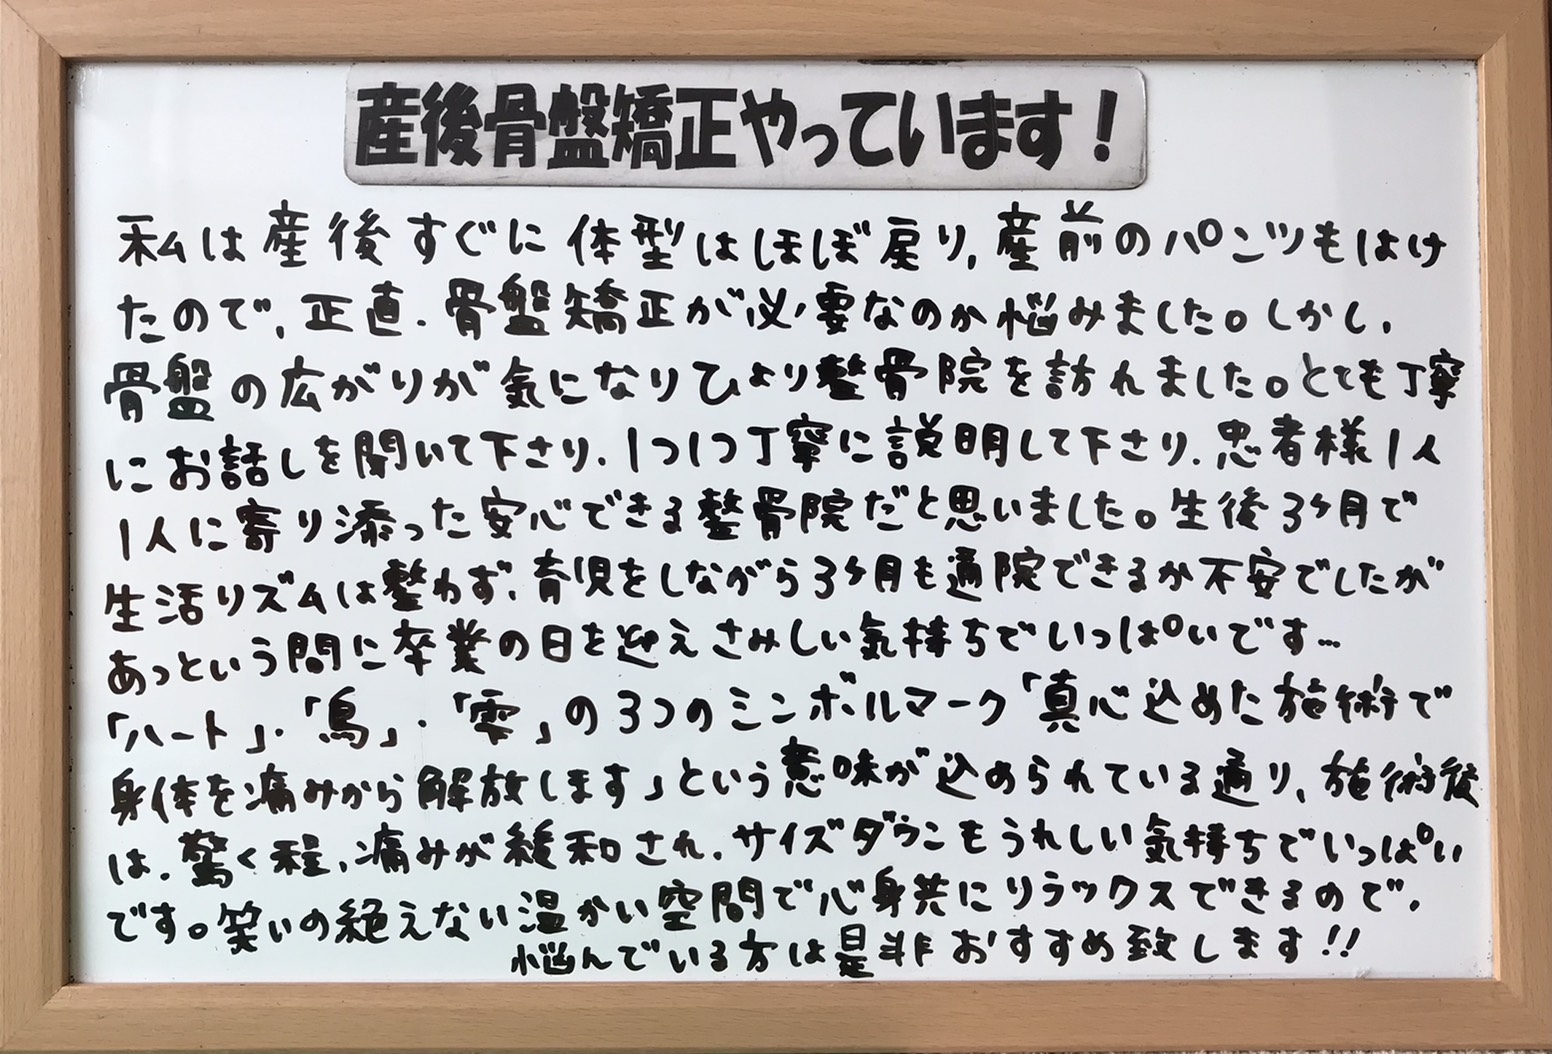 産後骨盤矯正やっています！
私は産後すぐに体型はほぼ戻り、産前のパンツもはけ
たので、正直、骨盤矯正が必要なのか悩みました。しかし、
骨盤の広がりが気になりひより整骨院を訪れました。とても丁寧
にお話しを聞いて下さり、1つ1つ丁寧に説明して下さり、患者様1人
1人に寄り添った安心できる整骨院だと思いました。生後3ヶ月で
生活リズムは整わず、育児をしながら3ヶ月も通院できるか不安でしたが
あっという間に卒業の日を迎えさみしい気持ちでいっぱいです…
「ハート」・「鳥」・「雫」の3つのシンボルマーク「真心込めた施術で
身体を痛みから解放します」という意味が込められている通り、施術後
は、驚く程、痛みが緩和され、サイズダウンもうれしい気持ちでいっぱい
です。笑いの絶えない温かい空間で心身共にリラックスできるので、
悩んでいる方は是非おすすめ致します!!